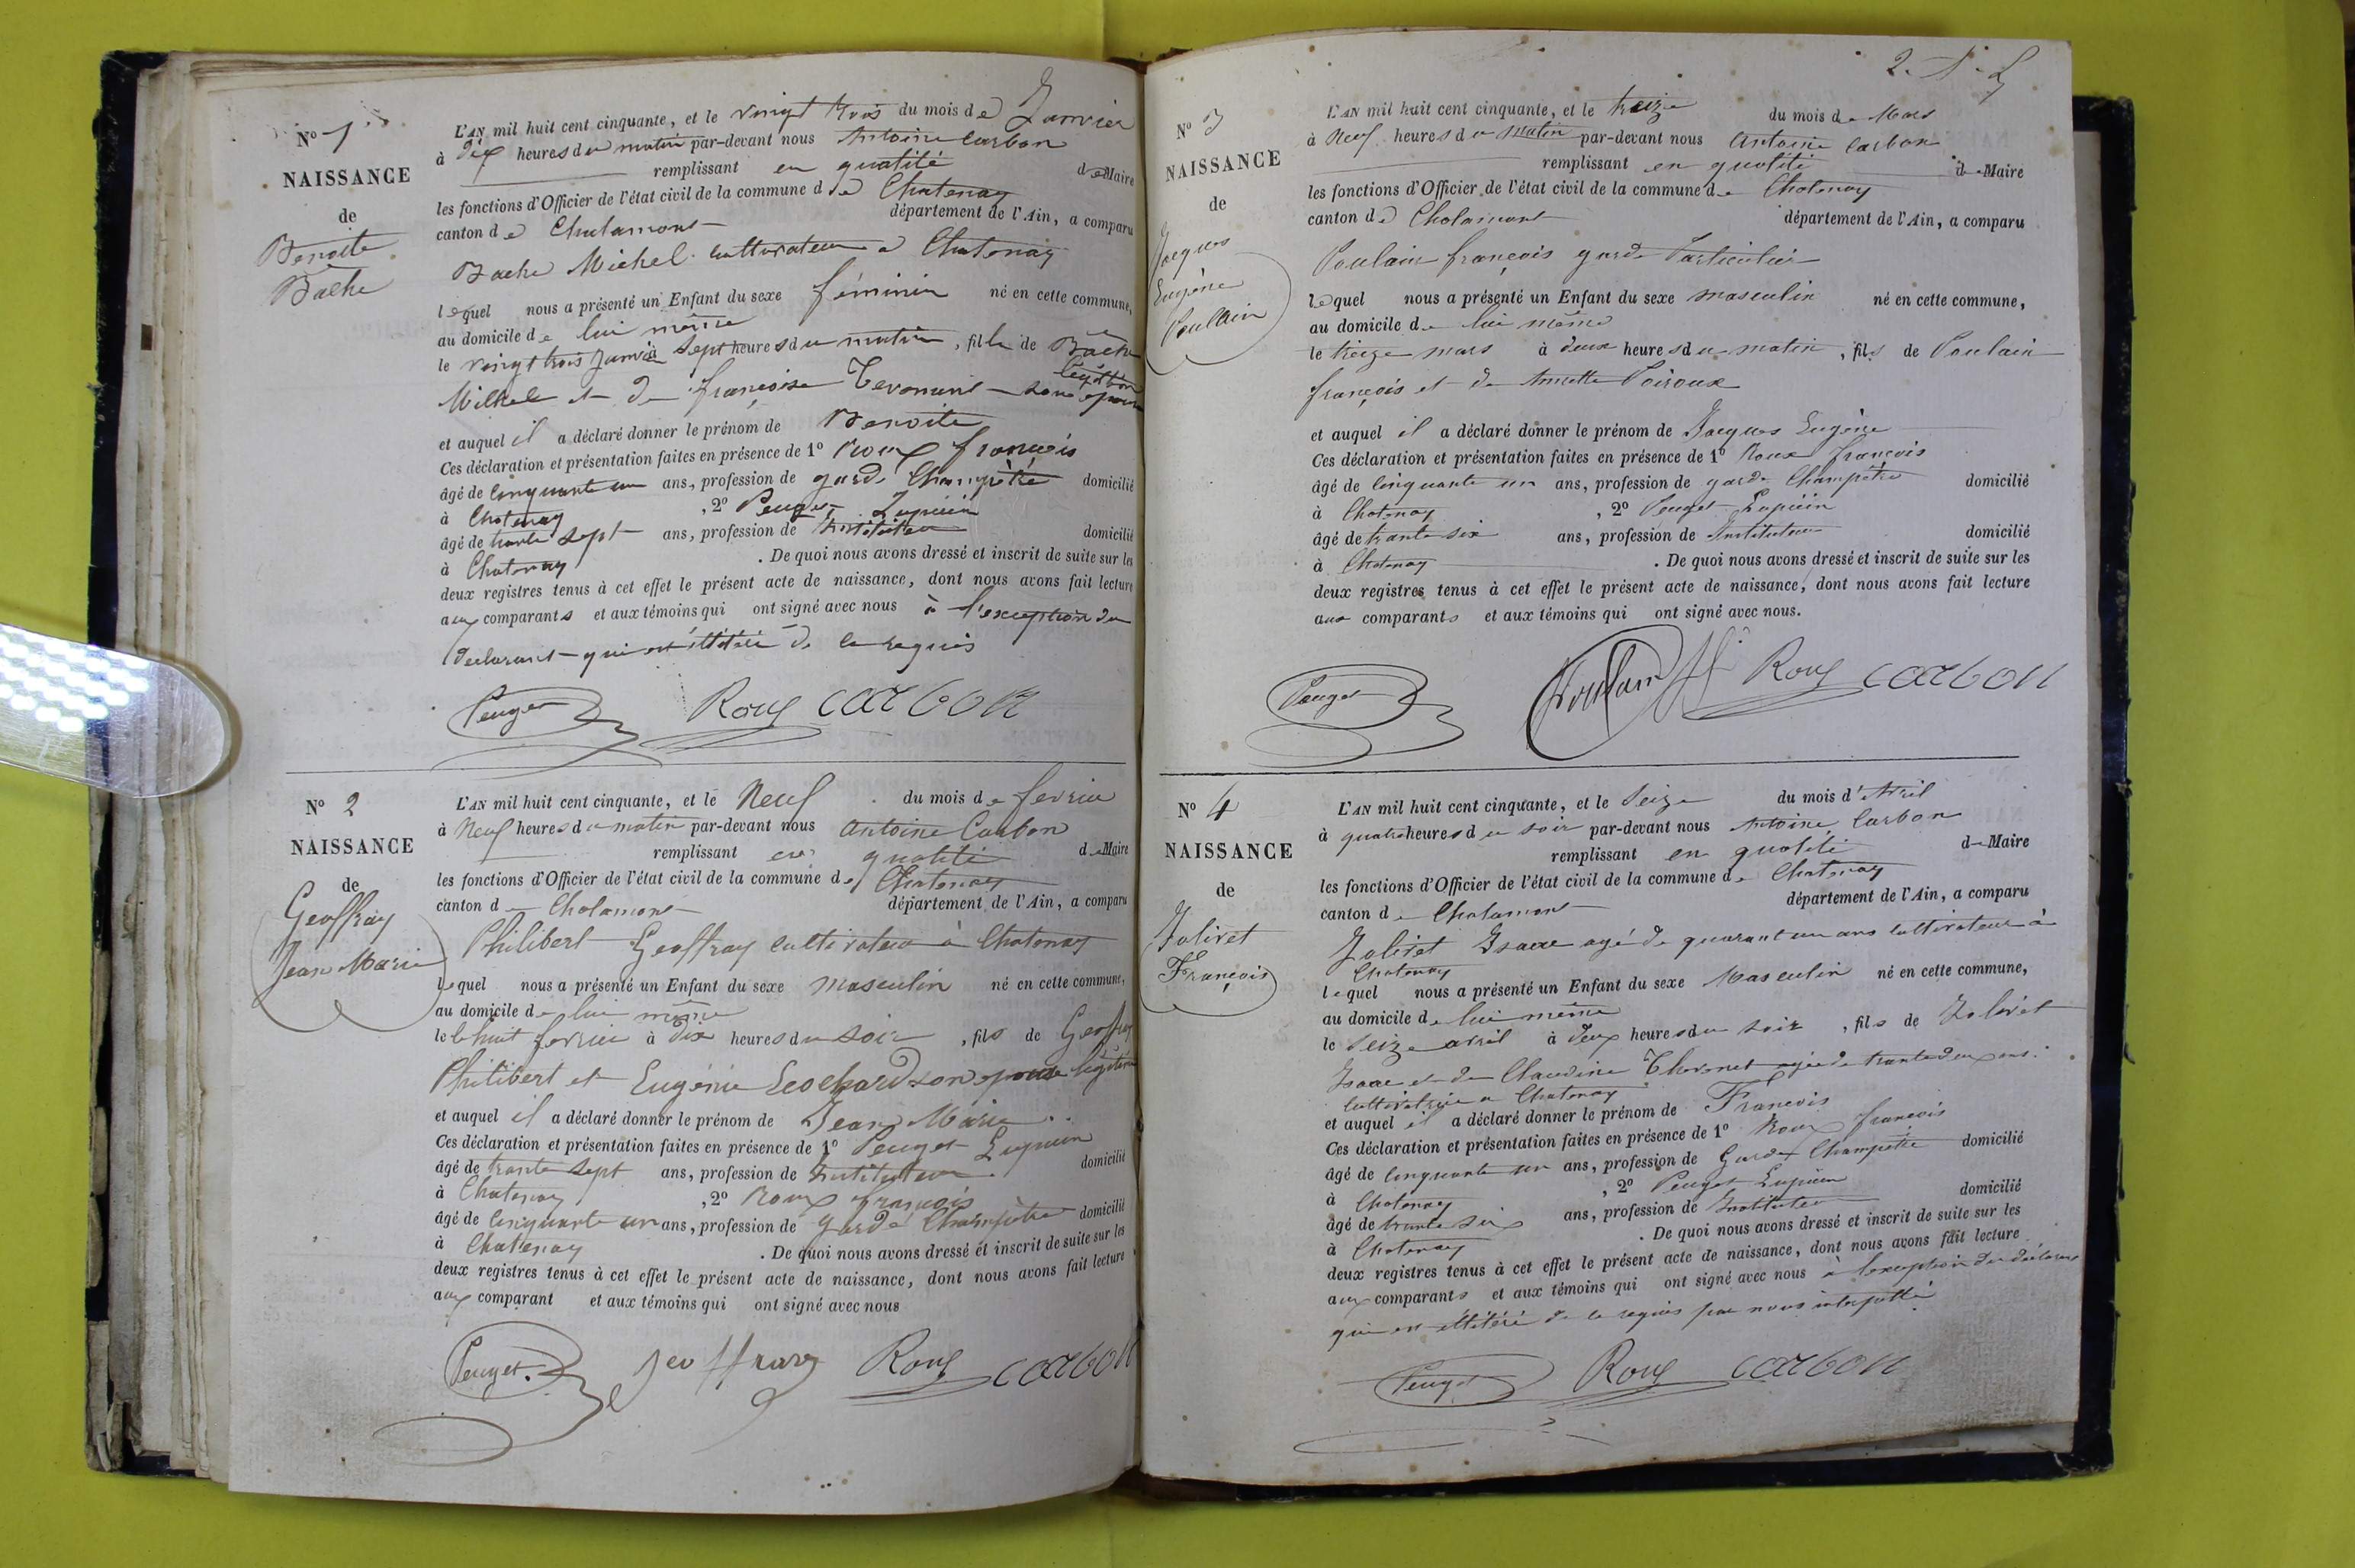 No 1
NAISSANCE
de
Benoite
Bache
L'AN mil huit cent cinquante, et le vingt trois du mois de Janvier
à dix heures du matin par-devant nous Antoine Carbon
remplissant en qualité de Maire
les fonctions d'Officier de l'état civil de la commune de Chatenay
canton de Chalamont département de l'Ain, a comparu
Bache Michel cultivateur a Chatenay
lequel nous a présenté un Enfant du sexe féminin né en cette commune,
au domicile de lui même
le vingt trois janvier à sept heures du matin, fille de Bache
Michel et de françoise son épouse
légitime
et auquel il a déclaré donner le prénom de Benoite
Ces déclaration et présentation faites en présence de 1º Roux françois
âgé de cinquante un ans, profession de garde Champêtre domicilié
à Chatenay, 2º Peuget Lupicin
âgé de trente sept ans, profession de Instituteur domicilié
à Chatenay. De quoi nous avons dressé et inscrit de suite sur les
deux registres tenus à cet effet le présent acte de naissance, dont nous avons fait lecture
aux comparants et aux témoins qui ont signé avec nous à l'exception du
déclarant qui est illétéré de ce requis
Peuget Roux carbon
No 2
NAISSANCE
de
Geoffray
Jean Marie
L'AN mil huit cent cinquante, et le Neuf du mois de fevrier
à Neuf heures du matin par-devant nous Antoine Carbon
remplissant en qualité de Maire
les fonctions d'Officier de l'état civil de la commune de Chatenay
canton de Chalamont département de l'Ain, a comparu
Philibert Geoffray cultivateur à Chatenay
lequel nous a présenté un Enfant du sexe masculin né en cette commune,
au domicile de lui même
le huit fevrier à dix heures du soir, fils de Geoffray
Philibert et Eugénie Leochard son epouse légitime
et auquel il a déclaré donner le prénom de Jean Marie
Ces déclaration et présentation faites en présence de 1º Peuget Lupicin
âgé de trente sept ans, profession de Instituteur domicilié
à Chatenay, 2º Roux françois
âgé de cinquante un ans, profession de garde Champêtre domicilié
à Chatenay. De quoi nous avons dressé et inscrit de suite sur les
deux registres tenus à cet effet le présent acte de naissance, dont nous avons fait lecture
aux comparant et aux témoins qui ont signé avec nous
Peuget. geoffray Roux carbon
No 3
NAISSANCE
de
Jacques
Eugène
Poulain
L'AN mil huit cent cinquante, et le treize du mois de Mars
à Neuf heures du matin par-devant nous Antoine Carbon
remplissant en qualité de Maire
les fonctions d'Officier de l'état civil de la commune de Chatenay
canton de Chalamont département de l'Ain, a comparu
Poulain françois garde Particulier
lequel nous a présenté un Enfant du sexe masculin né en cette commune,
au domicile de lui même
le treize mars à deux heures du matin, fils de Poulain
françois et de Annette Poiroux
et auquel il a déclaré donner le prénom de Jacques Eugène
Ces déclaration et présentation faites en présence de 1º Roux françois
âgé de cinquante un ans, profession de garde Champêtre domicilié
à Chatenay, 2º Peuget Lupicin
âgé de trente six ans, profession de Instituteur domicilié
à Chatenay. De quoi nous avons dressé et inscrit de suite sur les
deux registres tenus à cet effet le présent acte de naissance, dont nous avons fait lecture
aux comparants et aux témoins qui ont signé avec nous.
Peuget Poulain Roux carbon
No 4
NAISSANCE
de
Joliret
François
L'AN mil huit cent cinquante, et le Seize du mois d'Avril
à quatre heures du soir par-devant nous Antoine Carbon
remplissant en qualité de Maire
les fonctions d'Officier de l'état civil de la commune de Chatenay
canton de Chalamont département de l'Ain, a comparu
Joliret Isaac agé de quarant un ans cultivateur à
Chatenay
lequel nous a présenté un Enfant du sexe Masculin né en cette commune,
au domicile de lui même
le seize avril à deux heures du soir, fils de Joliret
Isaac et de Claudine Thevenet agée de trente deux ans
cultivatrice a Chatenay
et auquel il a déclaré donner le prénom de François
Ces déclaration et présentation faites en présence de 1º Roux françois
âgé de cinquante un ans, profession de Garde Champêtre domicilié
à Chatenay, 2º Peuget Lupicin
âgé de trente six ans, profession de Instituteur domicilié
à Chatenay. De quoi nous avons dressé et inscrit de suite sur les
deux registres tenus à cet effet le présent acte de naissance, dont nous avons fait lecture
aux comparants et aux témoins qui ont signé avec nous à l'exception du déclarant
qui est illétéré de ce requis par nous interpellé
Peuget Roux carbon